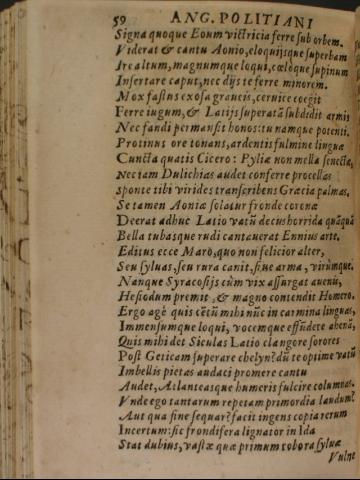 59 ANG. POLITIANI
Signa quoque Eoum victricia ferre sub orbem.
Viderat & cantu Aonio, eloquijsque superbam
Ire altum, magnumque loqui, cœloque supinum
Insertare caput, nec dijs te ferre minorem.
Mox fastus exosa graueis, ceruice coegit
Ferre iugum, & Latijs superatā subdidit armis
Nec fandi permansit honos: tu namque potenti.
Protinus ore tonans, ardentis fulmine linguæ
Cuncta quatis Cicero: Pyliæ non mella senectæ,
Nec iam Dulichias audet conferre procellas
Sponte tibi virides transcribens Græcia palmas.
Se tamen Aoniæ solatur fronde coronæ
Deerat adhuc Latio vatū decus horrida quāquā
Bella tubasque rudi cantauerat Ennius arte.
Editus ecce Maro, quo non felicior alter,
Seu syluas, seu rura canit, siue arma, virúmque.
Nanque Syracosijs cùm vix assurgat auenis,
Hesiodum premit, & magno contendit Homero.
Ergo agè quis cētū mihi nūc in carmina linguas,
Immensumque loqui, vocemque effūdere ahenā,
Quis mihi det Siculas Latio clangore sorores
Post Geticam superare chelyn? dū te optime vatū
Imbellis pietas audaci promere cantu
Audet, Atlanteasque humeris fulcire columnas.
Vnde ego tantarum repetam primordia laudum?
Aut qua fine sequar? facit ingens copia rerum
Incertum: sic frondifera lignator in Ida
Stat dubius, vastæ quæ primum robora syluæ
Vulne